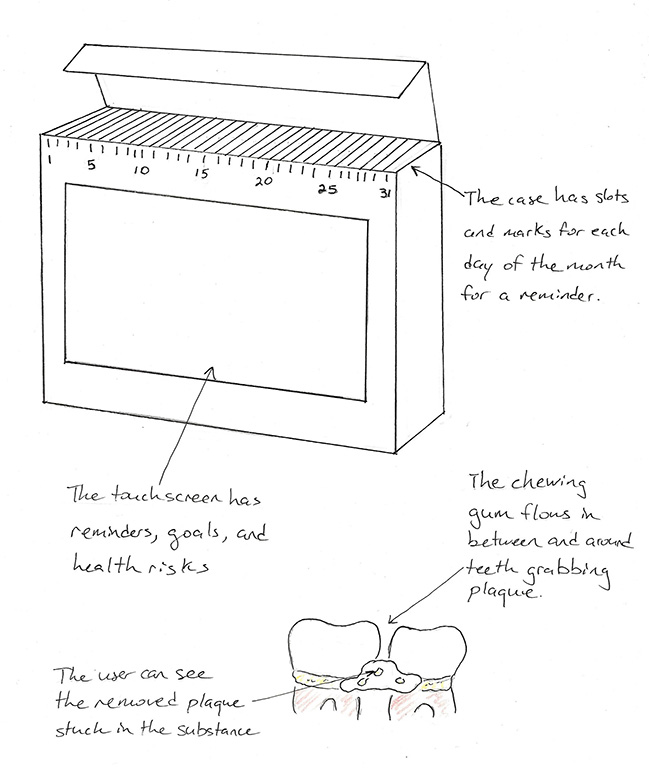 1 5 10 15 20 25 31
The case has slots
and marks for each
day of the month
for a reminder.
The touchscreen has
reminders, goals, and
health risks
The chewing
gum flows in
between and around
teeth grabbing
plaque.
The user can see
the removed plaque
stuck in the substance